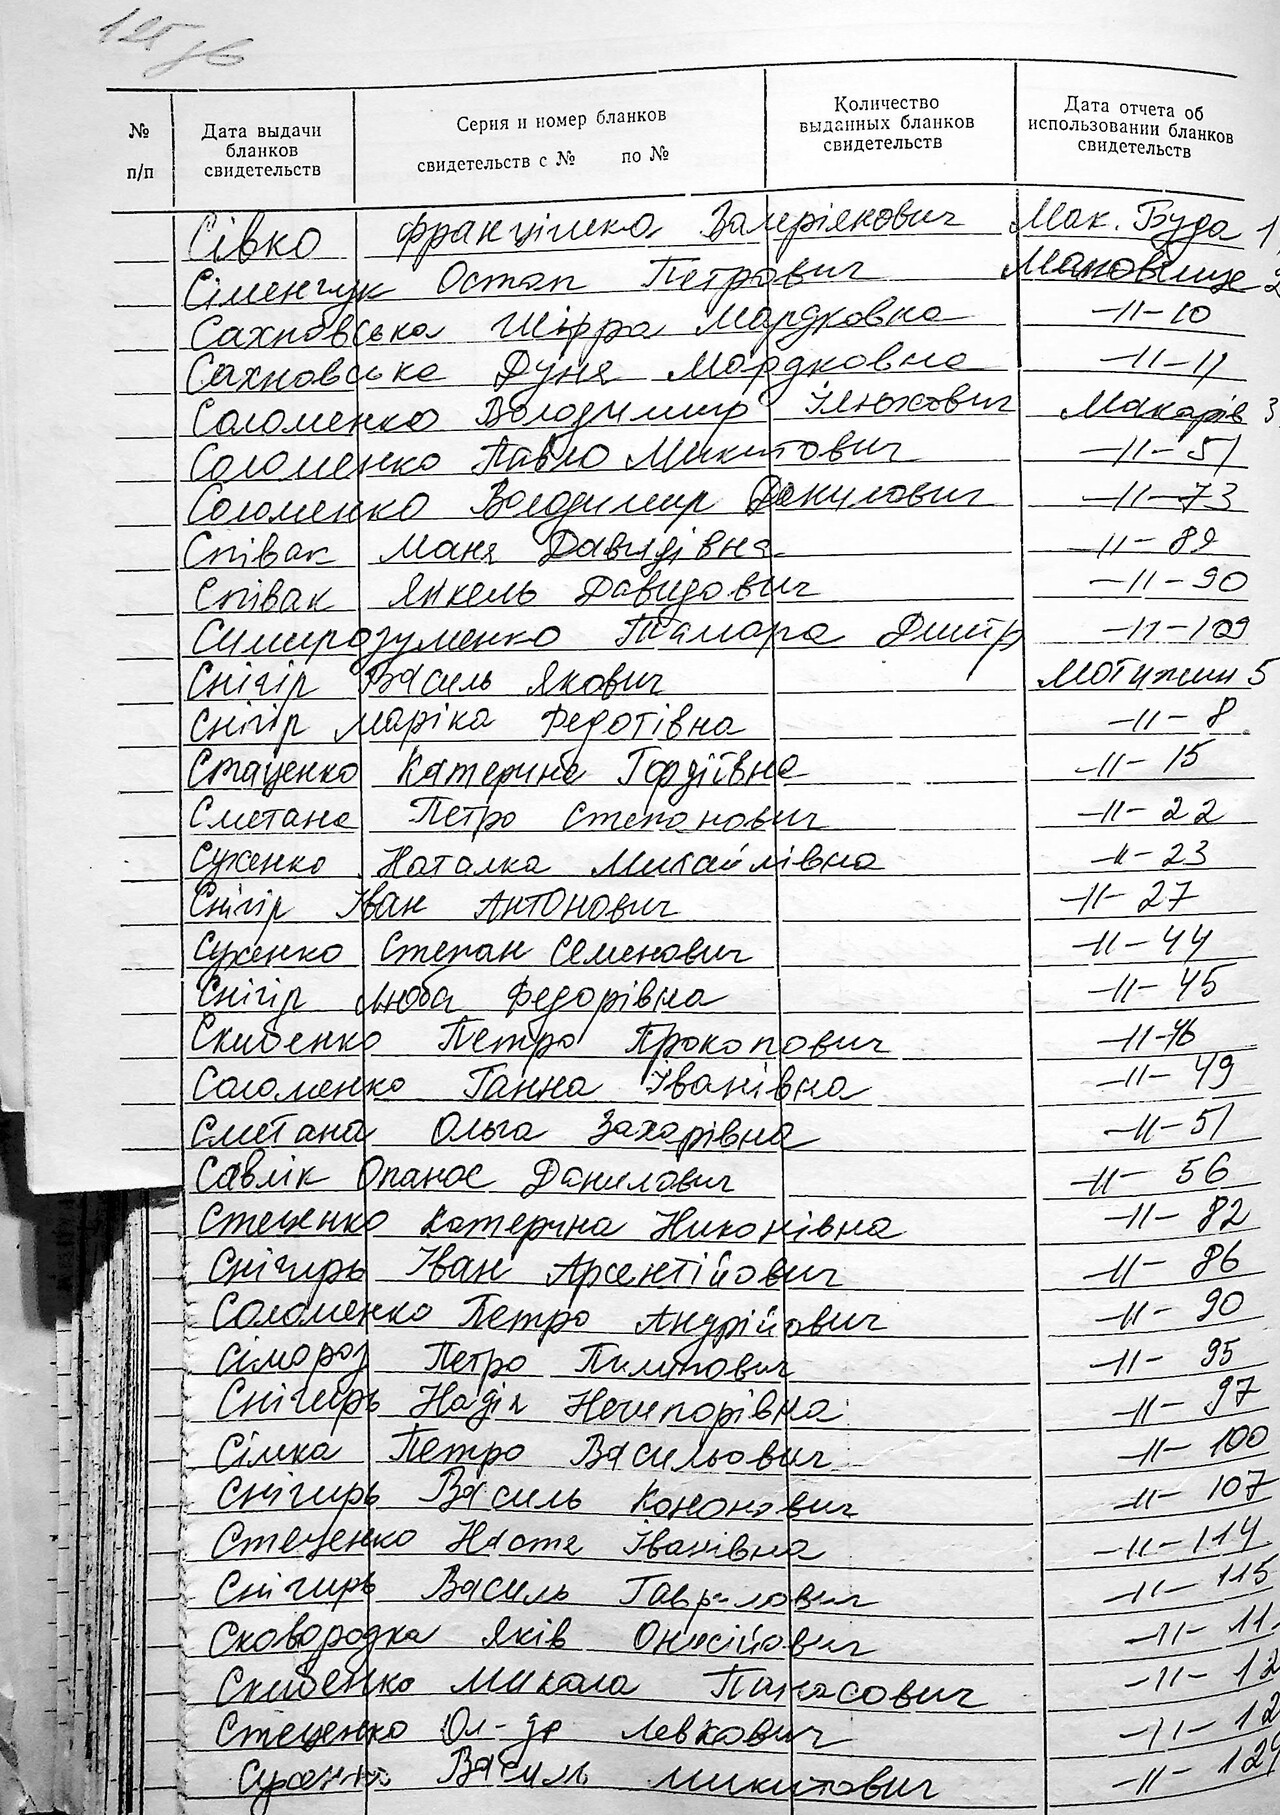 № п/п
Дата выдачи бланков свидетельств
Серия и номер бланков свидетельств с № по №
Количество выданных бланков свидетельств
Дата отчета об использовании бланков свидетельств
Сівко Францішка Валеріянович Мак. Буда 1
Сіменчук Остап Петрович Маковище 2
Сахновська Шіфра Мардковна -11- 10
Сахновська Дуня Мардковна -11- 11
Соломенко Володимир Ілюхович Макарів 3
Соломенко Павло Микитович -11- 51
Соломенко Володимир Данилович -11- 73
Співак Маня Давидівна -11- 89
Співак Янкель Давидович -11- 90
Симирозуменко Тамара Дмитр -11- 109
Снігір Василь Якович Мотижин 5
Снігір Маріка Федотівна -11- 8
Стаценко Катерина Гордіївна -11- 15
Сметана Петро Степанович -11- 22
Суженко Наталка Михайлівна -11- 23
Снігір Іван Антонович -11- 27
Суженко Степан Семенович -11- 44
Снігір Люба Федорівна -11- 45
Скибенко Петро Прокопович -11- 46
Соломенко Ганна Іванівна -11- 49
Сметана Ольга Захарівна -11- 51
Савлік Опанас Данилович -11- 56
Стеценко Катерина Никонівна -11- 82
Снігирь Іван Арсентійович -11- 86
Соломенко Петро Андрійович -11- 90
Сімороз Петро Пилипович -11- 95
Снігирь Надія Нечипорівна -11- 97
Сілка Петро Васильович -11- 100
Снігирь Василь Кононович -11- 107
Стеценко Настя Іванівна -11- 114
Снігирь Василь Гаврилович -11- 115
Сковородка Яків Онисійович -11- 11
Скибенко Микола Панасович -11- 12
Стеценко Ол-др Левкович -11- 12
Суженко Василь Микитович -11- 124